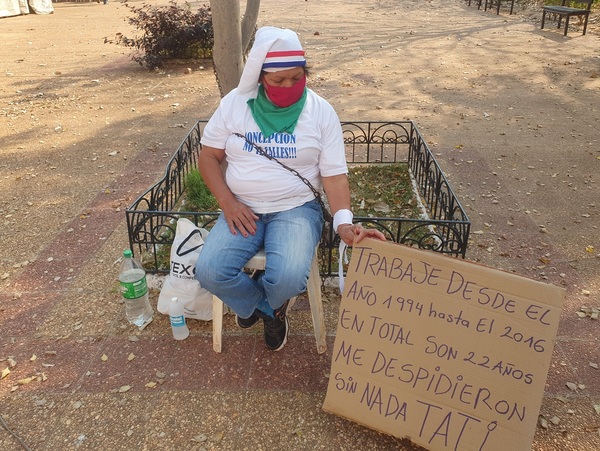 CONCEPCIÓN
NO TE CALLES!!!
TRABAJE DESDE EL
AÑO 1994 hasta El 2016
EN TOTAL SON 22 AÑOS
ME DESPIDIERON
SIN NADA TATI